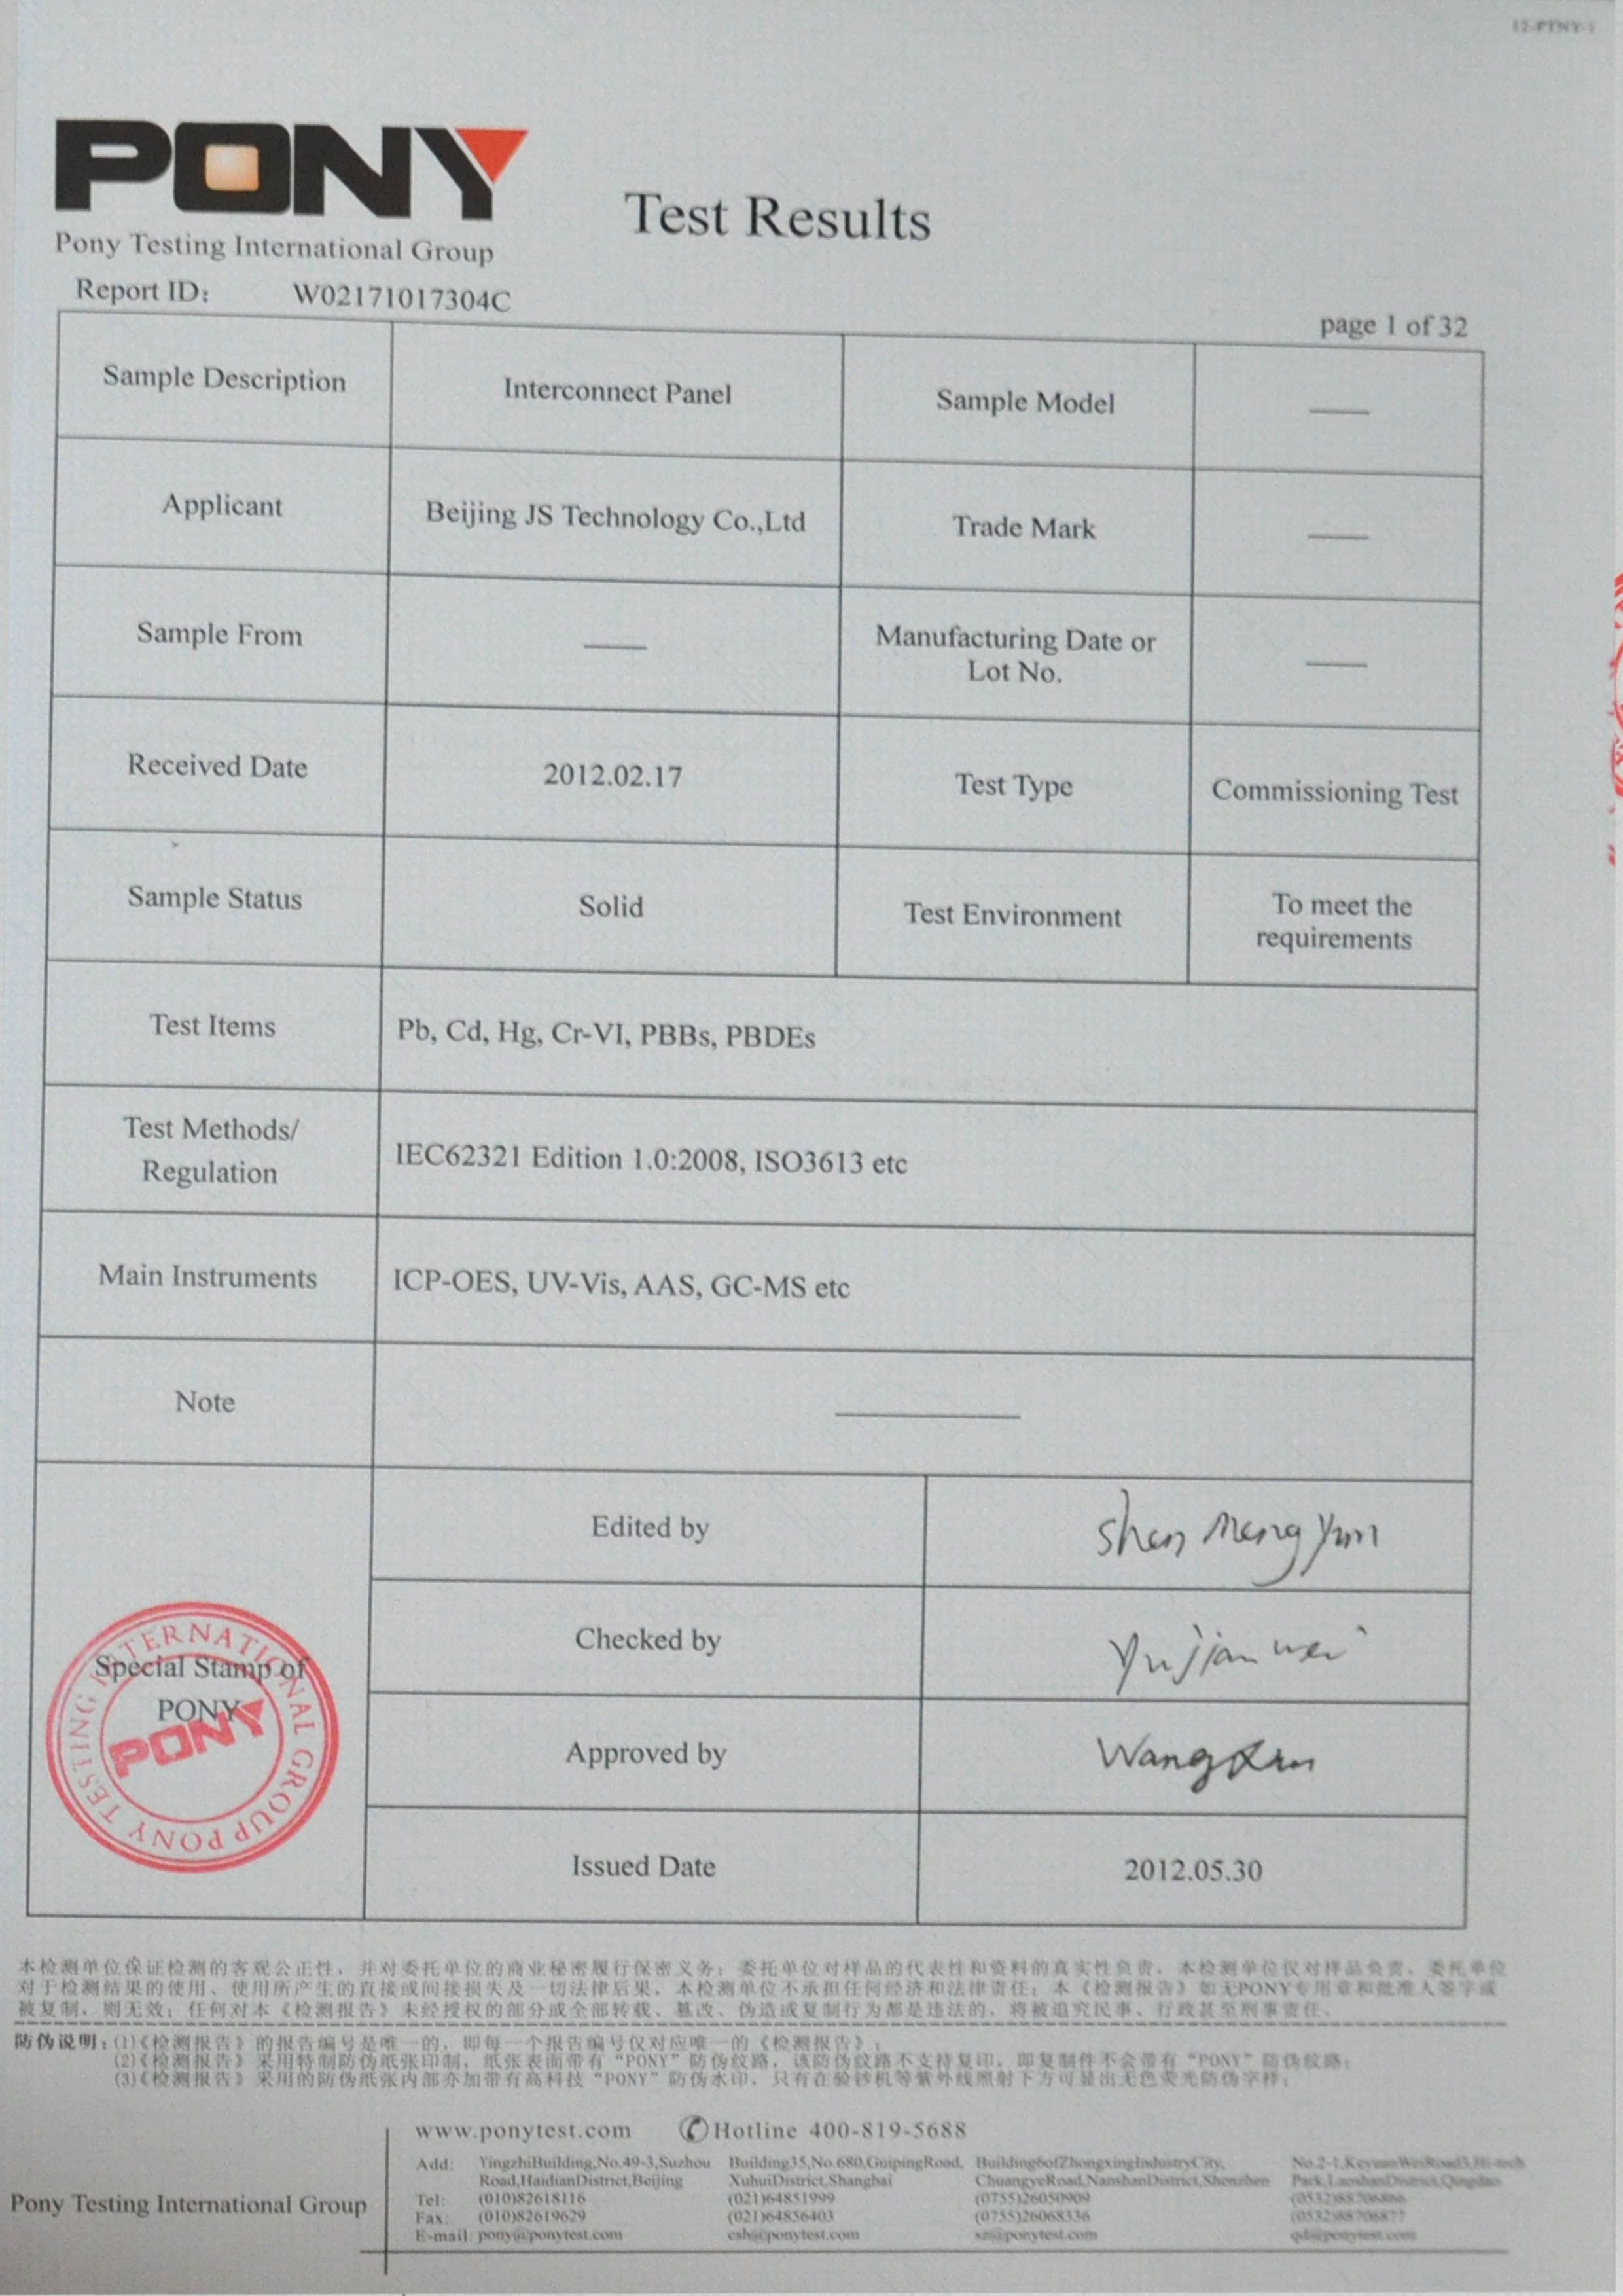 PONY
Pony Testing International Group
Test Results
Report ID: W02171017304C
page 1 of 32
Sample Description
Interconnect Panel
Sample Model
—
Applicant
Beijing JS Technology Co.,Ltd
Trade Mark
—
Sample From
—
Manufacturing Date or
Lot No.
—
Received Date
2012.02.17
Test Type
Commissioning Test
Sample Status
Solid
Test Environment
To meet the
requirements
Test Items
Pb, Cd, Hg, Cr-VI, PBBs, PBDEs
Test Methods/
Regulation
IEC62321 Edition 1.0:2008, ISO3613 etc
Main Instruments
ICP-OES, UV-Vis, AAS, GC-MS etc
Note
—
Special Stamp of
PONY
PONY
PONY TESTING INTERNATIONAL GROUP
Edited by
Shen Mengyun
Checked by
Yujianwei
Approved by
Wang
Issued Date
2012.05.30
本检测单位保证检测的客观公正性，并对委托单位的商业秘密履行保密义务；委托单位对样品的代表性和资料的真实性负责，本检测单位仅对样品负责，委托单位
对于检测结果的使用、使用所产生的直接或间接损失及一切法律后果，本检测单位不承担任何经济和法律责任；本《检测报告》如无PONY专用章和批准人签字或
被复制，则无效；任何对本《检测报告》未经授权的部分或全部转载、篡改、伪造或复制行为都是违法的，将被追究民事、行政甚至刑事责任。
防伪说明：(1)《检测报告》的报告编号是唯一的，即每一个报告编号仅对应唯一的《检测报告》；
(2)《检测报告》采用特制防伪纸张印制，纸张表面带有“PONY”防伪纹路，该防伪纹路不支持复印，即复制件不会带有“PONY”防伪纹路；
(3)《检测报告》采用的防伪纸张内部亦加带有高科技“PONY”防伪水印，只有在验钞机等紫外线照射下方可显出无色荧光防伪字样；
www.ponytest.com Hotline 400-819-5688
Pony Testing International Group
Add: YingzhiBuilding,No.49-3,Suzhou Building35,No.680,GuipingRoad, Building6ofZhongxingIndustryCity,
Road,HaidianDistrict,Beijing XuhuiDistrict,Shanghai ChuangyeRoad,NanshanDistrict,Shenzhen Park,LaoshanDistrict,Qingdao
Tel: (010)82618116 (021)64851999 (0755)26050909
Fax: (010)82619629 (021)64856403 (0755)26068336 (0532)88706877
E-mail: pony@ponytest.com csh@ponytest.com sz@ponytest.com qd@ponytest.com